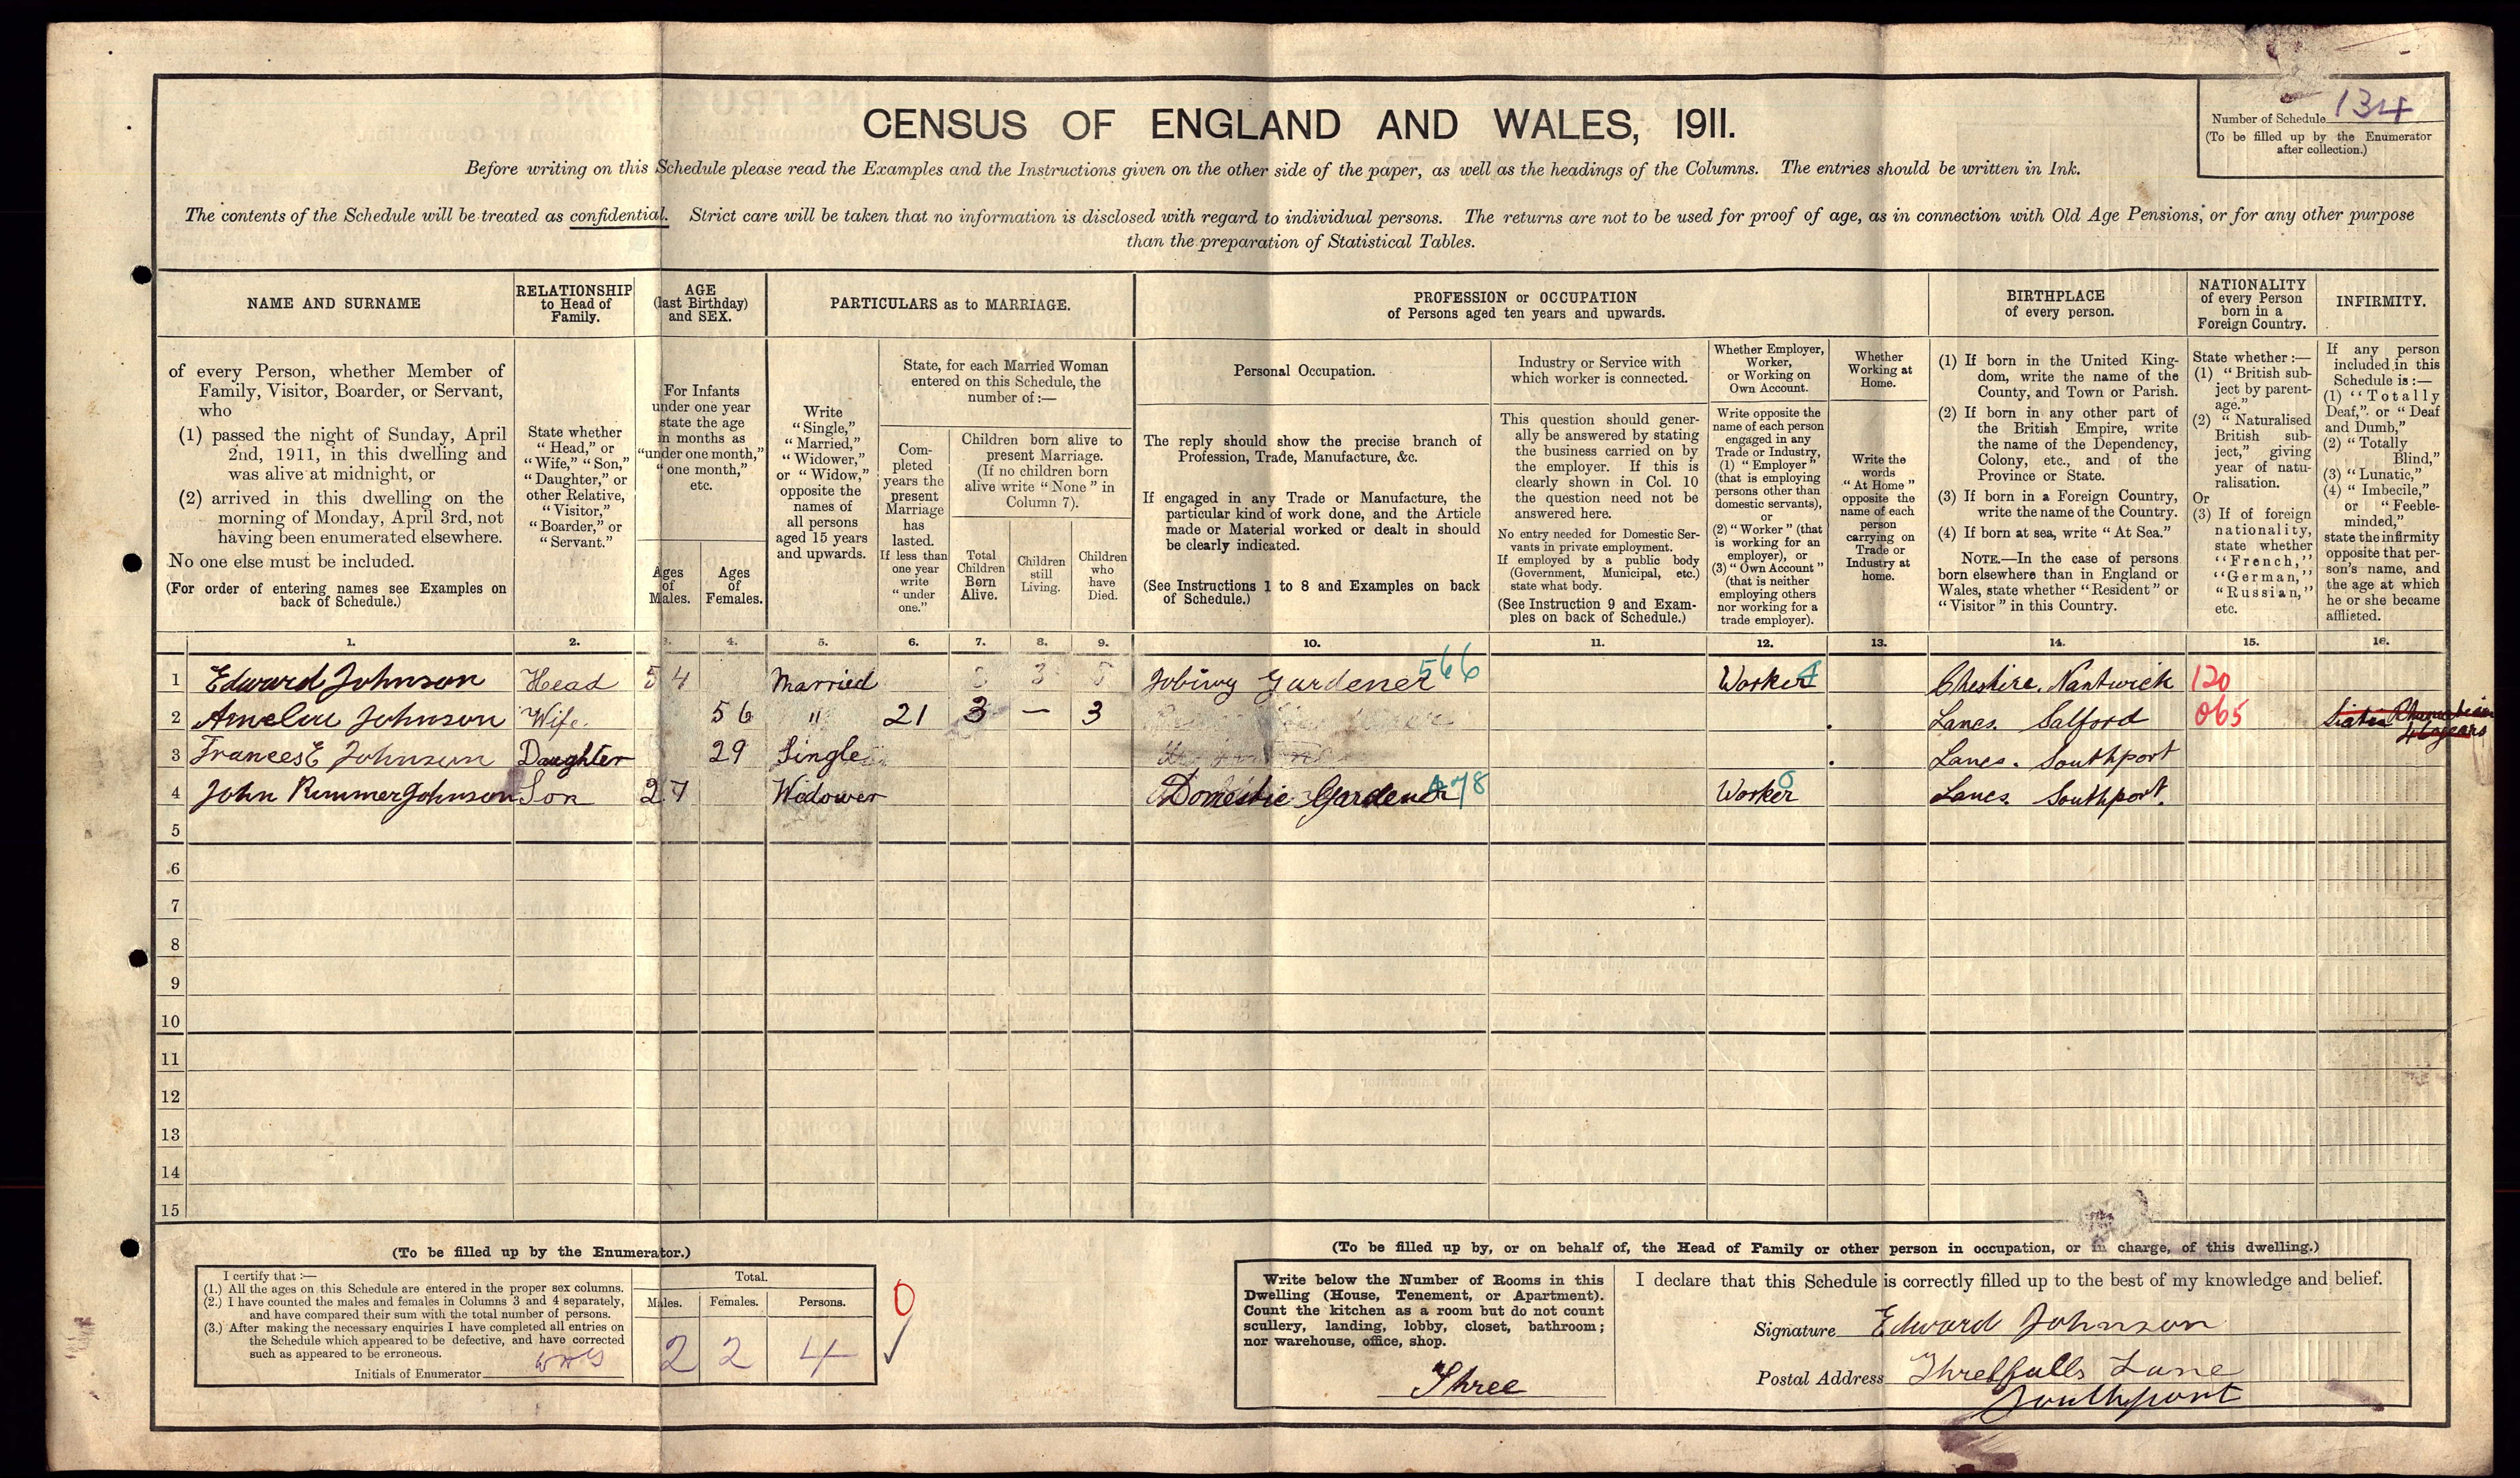 CENSUS OF ENGLAND AND WALES, 1911.
Number of Schedule 134
(To be filled up by the Enumerator
after collection.)
Before writing on this Schedule please read the Examples and the Instructions given on the other side of the paper, as well as the headings of the Columns. The entries should be written in Ink.
The contents of the Schedule will be treated as confidential. Strict care will be taken that no information is disclosed with regard to individual persons. The returns are not to be used for proof of age, as in connection with Old Age Pensions, or for any other purpose
than the preparation of Statistical Tables.
NAME AND SURNAME
of every Person, whether Member of
Family, Visitor, Boarder, or Servant,
who
(1) passed the night of Sunday, April
2nd, 1911, in this dwelling and
was alive at midnight, or
(2) arrived in this dwelling on the
morning of Monday, April 3rd, not
having been enumerated elsewhere.
No one else must be included.
(For order of entering names see Examples on
back of Schedule.)
RELATIONSHIP
to Head of
Family.
State whether
"Head," or
"Wife," "Son,"
"Daughter," or
other Relative,
"Visitor,"
"Boarder," or
"Servant."
AGE
(last Birthday)
and SEX.
For Infants
under one year
state the age
in months as
"under one month,"
"one month,"
etc.
Ages
of
Males.
Ages
of
Females.
PARTICULARS as to MARRIAGE.
Write
"Single,"
"Married,"
"Widower,"
or "Widow,"
opposite the
names of
all persons
aged 15 years
and upwards.
State, for each Married Woman
entered on this Schedule, the
number of :—
Com-
pleted
years the
present
Marriage
has
lasted.
If less than
one year
write
"under
one."
Children born alive to
present Marriage.
(If no children born
alive write "None" in
Column 7).
Total
Children
Born
Alive.
Children
still
Living.
Children
who
have
Died.
PROFESSION or OCCUPATION
of Persons aged ten years and upwards.
Personal Occupation.
The reply should show the precise branch of
Profession, Trade, Manufacture, &c.
If engaged in any Trade or Manufacture, the
particular kind of work done, and the Article
made or Material worked or dealt in should
be clearly indicated.
(See Instructions 1 to 8 and Examples on back
of Schedule.)
Industry or Service with
which worker is connected.
This question should gener-
ally be answered by stating
the business carried on by
the employer. If this is
clearly shown in Col. 10
the question need not be
answered here.
No entry needed for Domestic Ser-
vants in private employment.
If employed by a public body
(Government, Municipal, etc.)
state what body.
(See Instruction 9 and Exam-
ples on back of Schedule.)
Whether Employer,
Worker,
or Working on
Own Account.
Write opposite the
name of each person
engaged in any
Trade or Industry,
(1) "Employer"
(that is employing
persons other than
domestic servants),
or
(2) "Worker" (that
is working for an
employer), or
(3) "Own Account"
(that is neither
employing others
nor working for a
trade employer).
Whether
Working at
Home.
Write the
words
"At Home"
opposite the
name of each
person
carrying on
Trade or
Industry at
home.
BIRTHPLACE
of every person.
(1) If born in the United King-
dom, write the name of the
County, and Town or Parish.
(2) If born in any other part of
the British Empire, write
the name of the Dependency,
Colony, etc., and of the
Province or State.
(3) If born in a Foreign Country,
write the name of the Country.
(4) If born at sea, write "At Sea."
NOTE.—In the case of persons
born elsewhere than in England or
Wales, state whether "Resident" or
"Visitor" in this Country.
NATIONALITY
of every Person
born in a
Foreign Country.
State whether :—
(1) "British sub-
ject by parent-
age."
(2) "Naturalised
British sub-
ject," giving
year of natu-
ralisation.
Or
(3) If of foreign
nationality,
state whether
"French,"
"German,"
"Russian,"
etc.
INFIRMITY.
If any person
included in this
Schedule is :—
(1) "Totally
Deaf," or "Deaf
and Dumb,"
(2) "Totally
Blind,"
(3) "Lunatic,"
(4) "Imbecile,"
or "Feeble-
minded,"
state the infirmity
opposite that per-
son's name, and
the age at which
he or she became
afflicted.
1. 2. 3. 4. 5. 6. 7. 8. 9. 10. 11. 12. 13. 14. 15. 16.
1 Edward Johnson Head 54 Married Jobing Gardener 566 Worker Cheshire. Nantwick 120
2 Amelia Johnson Wife. 56 " 21 3 — 3 Lancs. Salford 065
3 Frances E Johnson Daughter 29 Single Lancs. Southport
4 John Rimmer Johnson Son 27 Widower Domestic Gardener 478 Worker 0 Lancs. Southport.
5
6
7
8
9
10
11
12
13
14
15
(To be filled up by the Enumerator.)
I certify that :—
(1.) All the ages on this Schedule are entered in the proper sex columns.
(2.) I have counted the males and females in Columns 3 and 4 separately,
and have compared their sum with the total number of persons.
(3.) After making the necessary enquiries I have completed all entries on
the Schedule which appeared to be defective, and have corrected
such as appeared to be erroneous.
Initials of Enumerator
Total.
Males. Females. Persons.
2 2 4
0
(To be filled up by, or on behalf of, the Head of Family or other person in occupation, or in charge, of this dwelling.)
Write below the Number of Rooms in this
Dwelling (House, Tenement, or Apartment).
Count the kitchen as a room but do not count
scullery, landing, lobby, closet, bathroom;
nor warehouse, office, shop.
Three
I declare that this Schedule is correctly filled up to the best of my knowledge and belief.
Signature Edward Johnson
Postal Address Threlfalls Lane
Southport